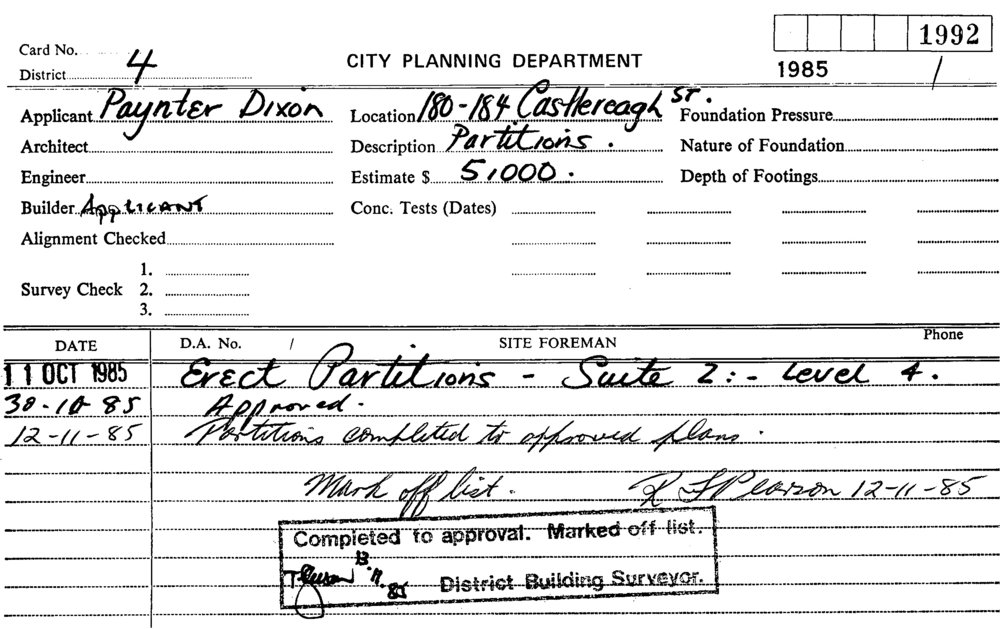 1992
Card No.
CITY PLANNING DEPARTMENT
District 4
1985 /
Applicant Paynter Dixon Location 180-184 Castlereagh ST. Foundation Pressure
Architect Description Partitions. Nature of Foundation
Engineer Estimate $ 5,000. Depth of Footings
Builder Applicant Conc. Tests (Dates)
Alignment Checked
1.
Survey Check 2.
3.
DATE D.A. No. / SITE FOREMAN Phone
11 OCT 1985 Erect Partitions - Suite 2:- Level 4.
30-10-85 Approved.
12-11-85 Partitions completed to approved plans.
Mark off list. R F Pearson 12-11-85
Completed to approval. Marked off list.
13.11.85 District Building Surveyor.